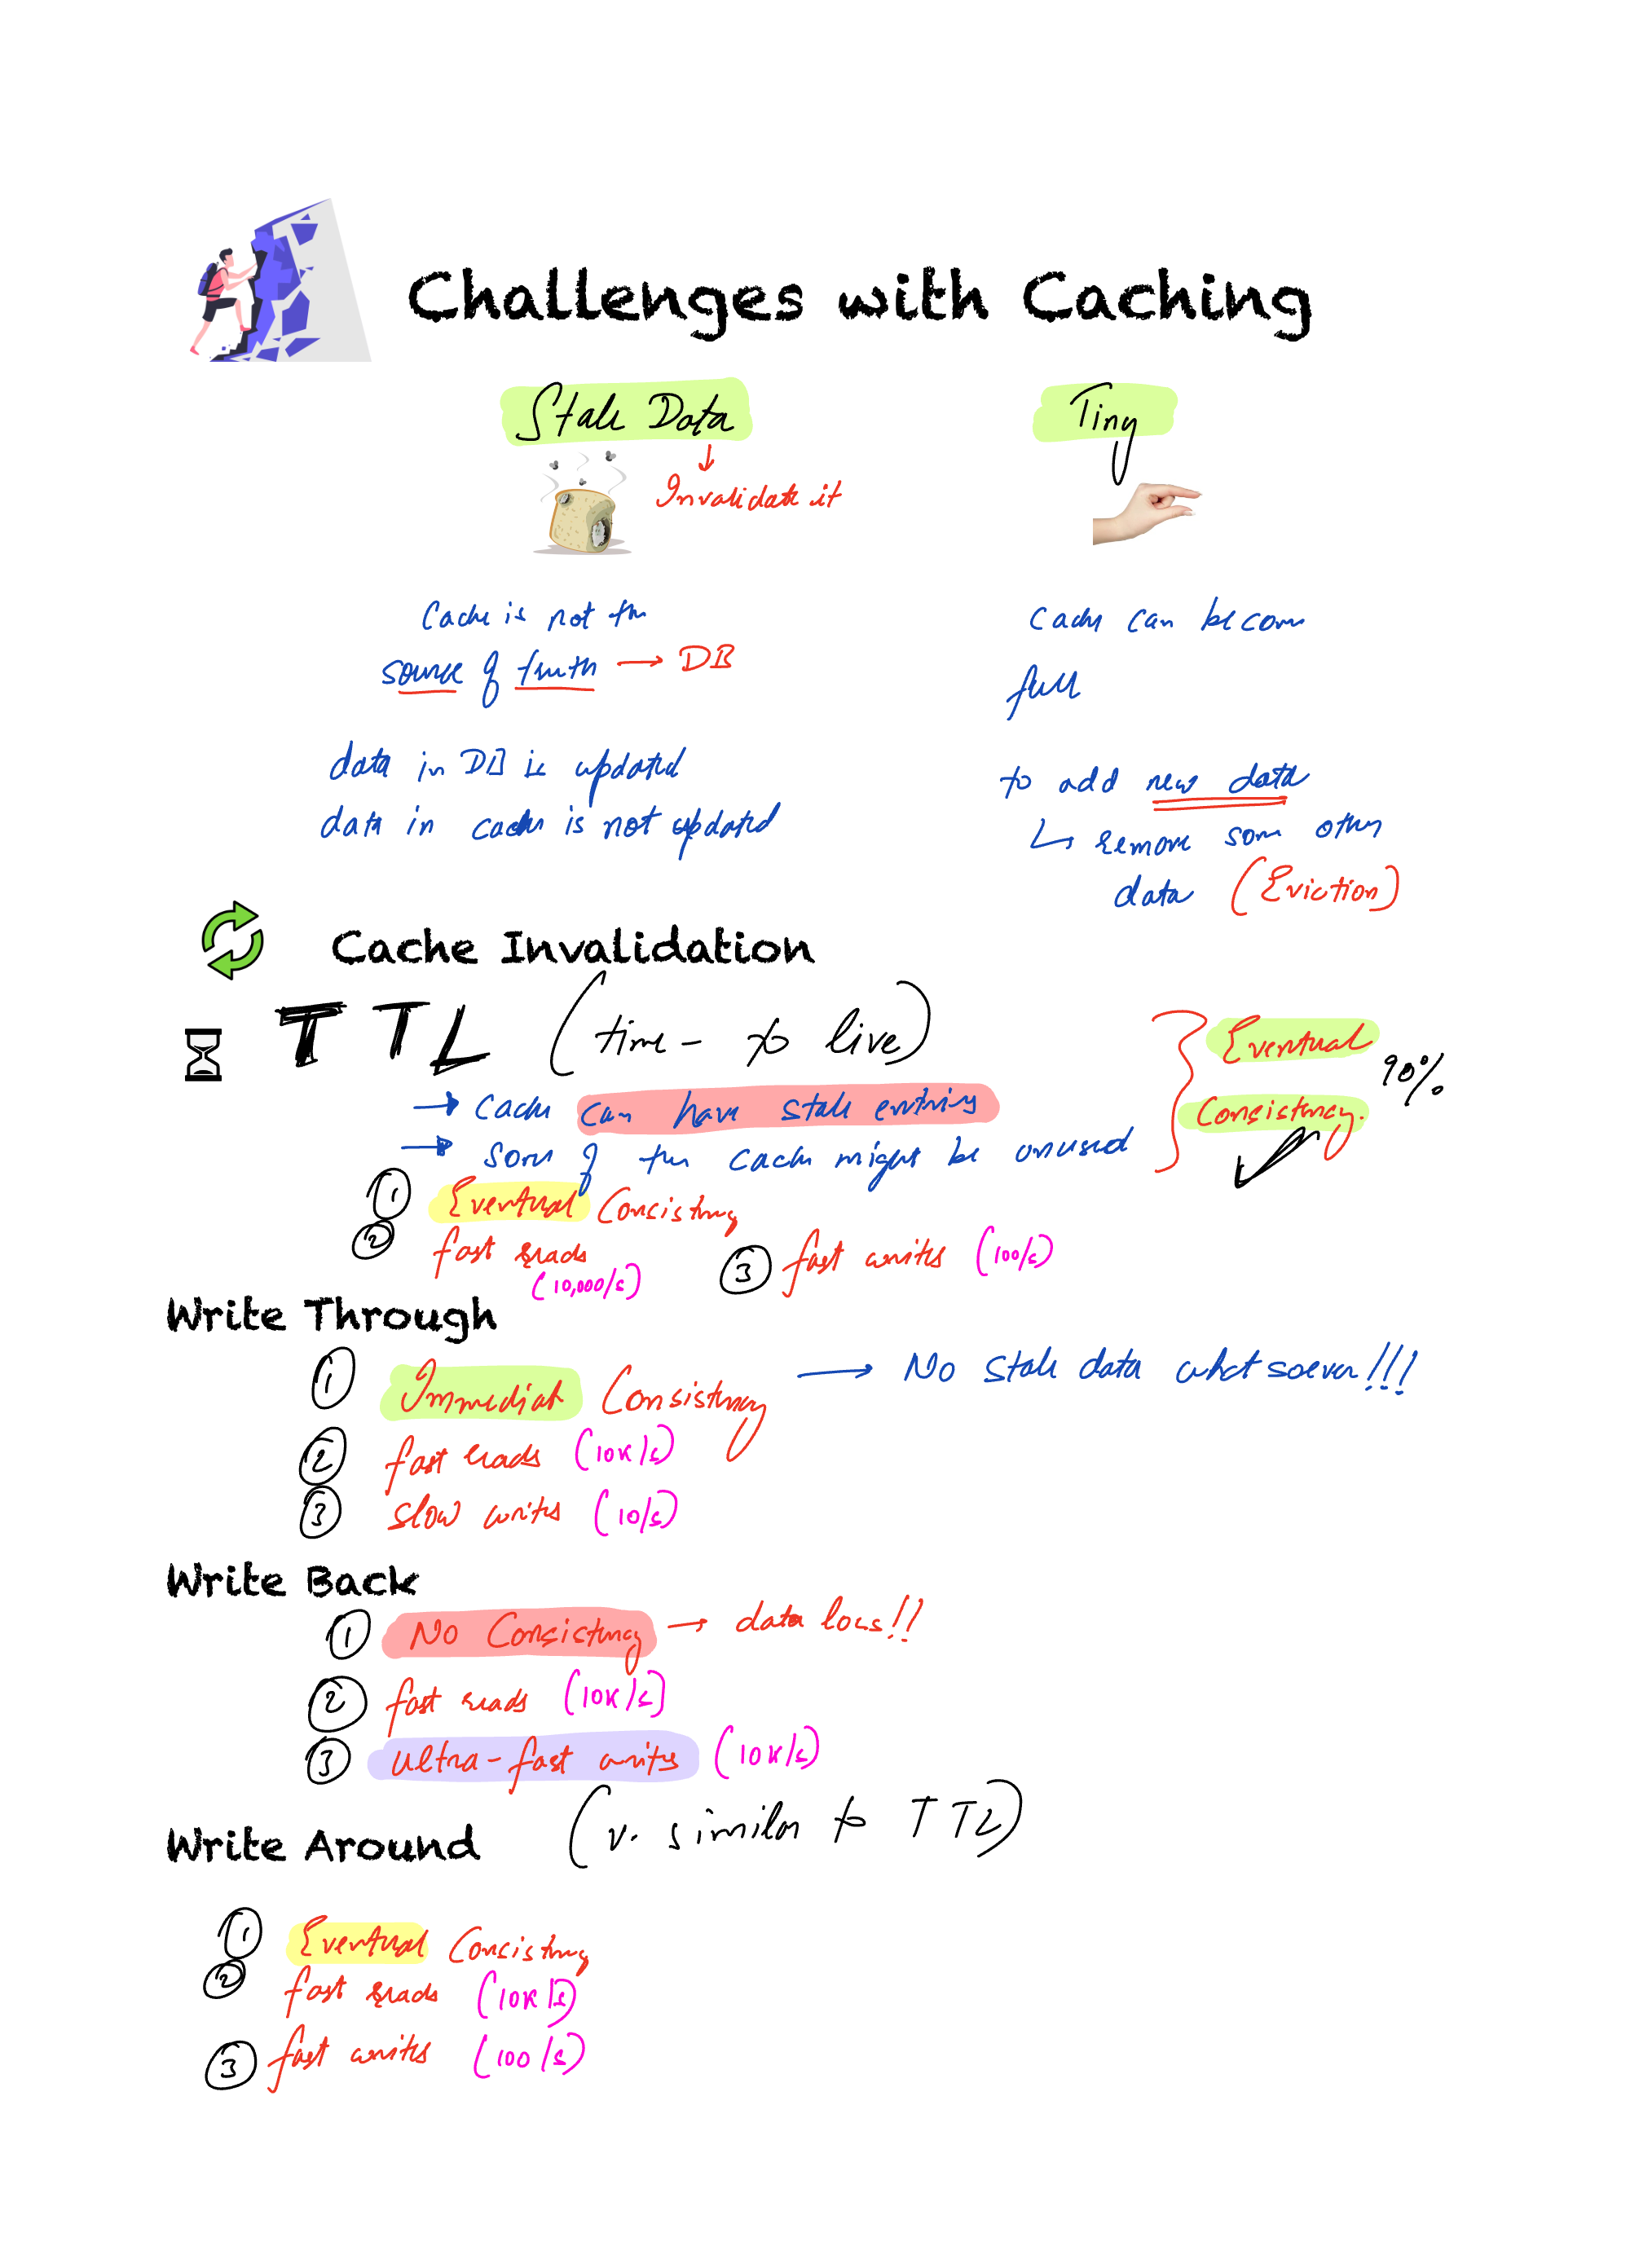 Challenges with Caching
Stale Data
Invalidate it
Cache is not the
source of truth → DB
data in DB is updated
data in cache is not updated
Tiny
Cache can become
full
to add new data
↳ remove some other
data (Eviction)
Cache Invalidation
TTL (time - to live)
→ Cache can have stale entries
→ Some of the cache might be unused
Eventual
Consistency.
90%
① Eventual Consistency
② fast reads
(10,000/s)
③ fast writes (100/s)
Write Through
① Immediate Consistency → No stale data whatsoever!!!
② fast reads (10K/s)
③ slow writes (10/s)
Write Back
① No Consistency → data loss!!
② fast reads (10K/s)
③ ultra-fast writes (10K/s)
Write Around (v. similar to TTL)
① Eventual Consistency
② fast reads (10K/s)
③ fast writes (100/s)